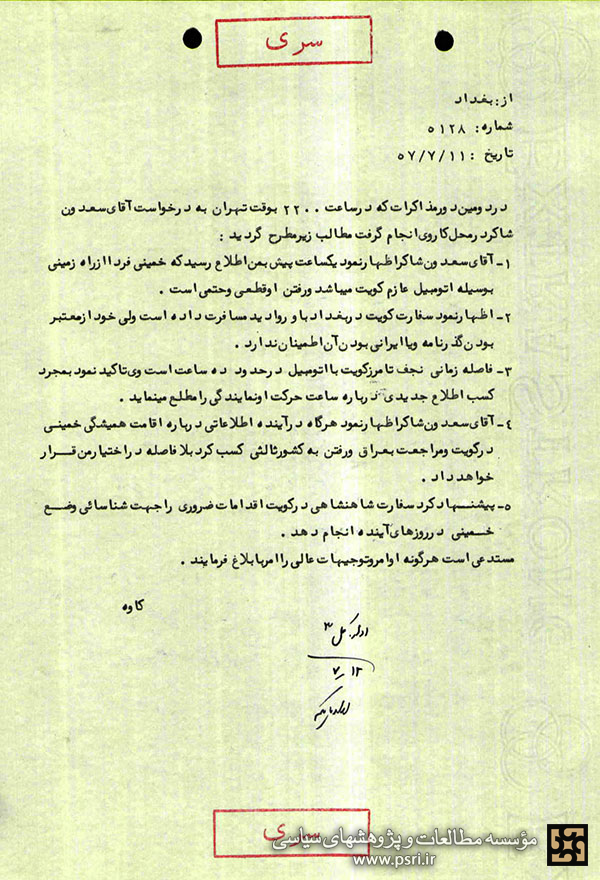 سری
از: بغداد
شماره: ۵۱۲۸
تاریخ: ۵۷/۷/۱۱
در دومین دور مذاکرات که در ساعت ۲۲۰۰ بوقت تهران به درخواست آقای سعدون
شاکر در محل کار وی انجام گرفت مطالب زیر مطرح گردید:
۱- آقای سعدون شاکر اظهار نمود یکساعت پیش بمن اطلاع رسید که خمینی فردا از راه زمینی
بوسیله اتومبیل عازم کویت میباشد و رفتن او قطعی و حتمی است.
۲- اظهار نمود سفارت کویت در بغداد باو روادید مسافرت داده است ولی خود از معتبر
بودن گذرنامه و یا ایرانی بودن آن اطمینان ندارد.
۳- فاصله زمانی نجف تا مرز کویت با اتومبیل در حدود ده ساعت است وی تاکید نمود بمجرد
کسب اطلاع جدیدی درباره ساعت حرکت او نمایندگی را مطلع مینماید.
٤- آقای سعدون شاکر اظهار نمود هرگاه در آینده اطلاعاتی درباره اقامت همیشگی خمینی
در کویت و مراجعت بعراق و رفتن به کشور ثالثی کسب کرد بلافاصله در اختیار من قرار
خواهد داد.
۵- پیشنهاد کرد سفارت شاهنشاهی در کویت اقدامات ضروری را جهت شناسائی وضع
خمینی در روزهای آینده انجام دهد.
مستدعی است هرگونه اوامر و توجیهات عالی را امر بابلاغ فرمایند.
کاوه
اداره کل ۳
۷/۱۲
سری
مؤسسه مطالعات و پژوهشهای سیاسی
www.psri.ir